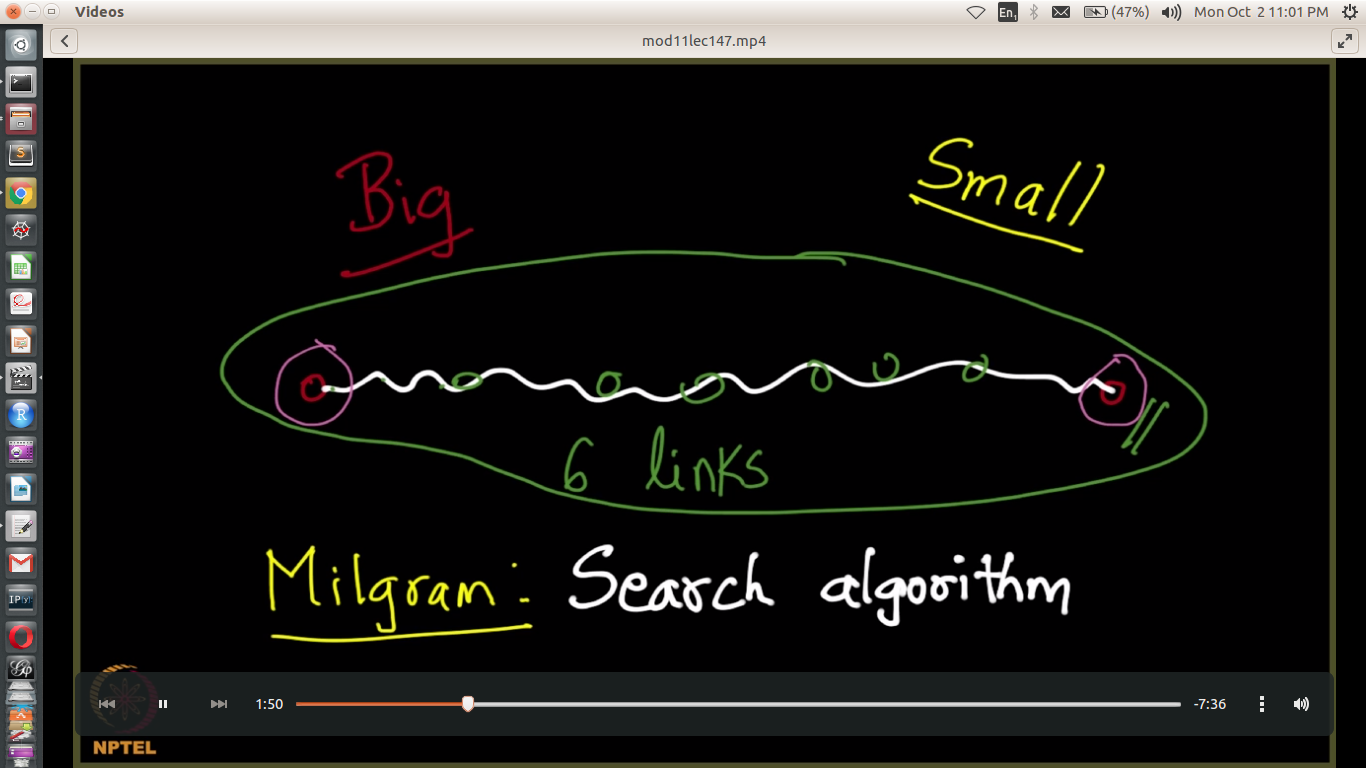 Videos
En1 (47%) Mon Oct 2 11:01 PM
mod11lec147.mp4
Big Small
6 links
Milgram: Search algorithm
1:50 -7:36
NPTEL